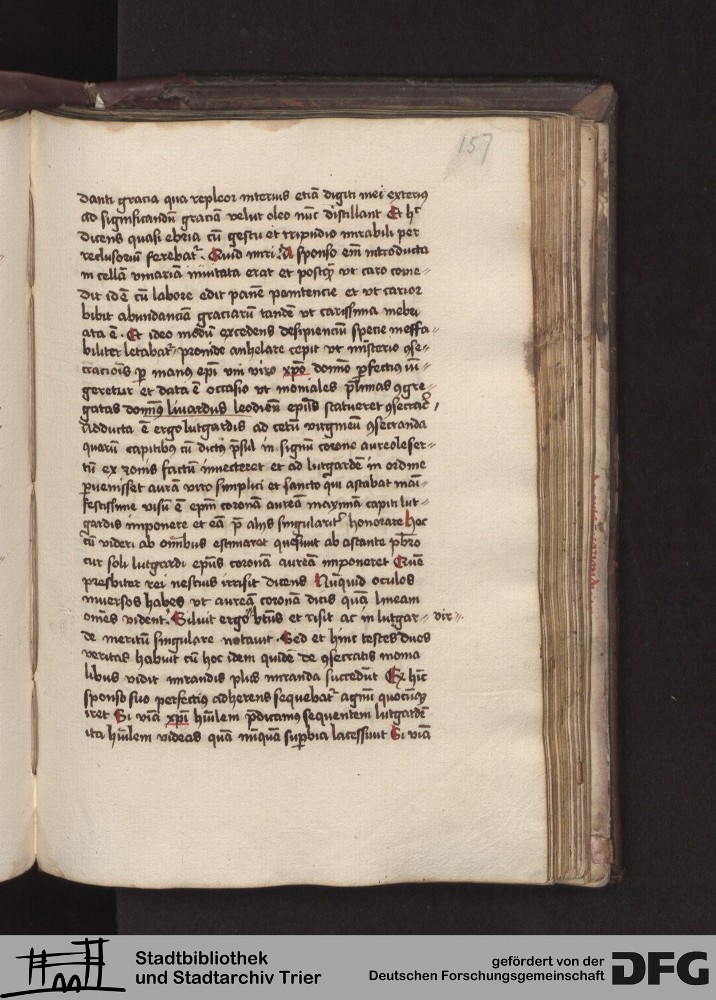 157
danti gracia qua repleor interius etiā digiti mei exterius
ad significandū graciā velut oleo nūc distillant Et hec
dicens quasi ebria cū gestu et tripudio mirabili per
reclusoriū ferebat᷑. Quid miri A sponso em̄ introducta
in cellā vinariā inuitata erat et postꝙ̄ vt caro come⸗
dit idē cū labore edit panē penitencie et vt carior
bibit abundanciā graciarū tandē vt carissima inebri
ata ē. Et ideo modū excedens desipienciū specie ineffa⸗
biliter letabat᷑ proinde anhelare cepit vt misterio ꝯse⸗
cracionis ꝑ manꝰ epī vni viro xpō domino ꝑfectiꝰ iū⸗
geretur et data ē occasio vt moniales plimas ꝯgre⸗
gatas domnꝰ liuardus leodien̄ ep̄us statueret ꝯsecrare
Adducta ē ergo lutgardis ad cetū virgineū ꝯsecranda
quarū capitibꝰ cū dictꝰ presul in signū corone aureole ser⸗
tū ex zonis factū innecteret et ad lutgardē in ordine
ꝑuenisset aurā viro simplici et sancto qui astabat mani⸗
festissime visū ē epm̄ coronā aureā maximā capiti lut⸗
gardis imponere et eā p̄ alijs singularit᷑ honorare hoc
cū videri ab om̄ibus estimaret quesiuit ab astante pbr̄o
cur soli lutgardi ep̄us coronā aureā imponeret Quē
presbiter rei nescius irrisit dicens Nūquid oculos
inuersos habes vt aureā coronā dicis quā lineam
om̄es vident. Siluit ergo vtꝰ et risit ac in lutgar⸗ vir⸗
de meritū singulare notauit. Sed et hinc testes duos
veritas habuit cū hoc idem quidē de ꝯsecratis monia
libus vidit mirandis plus miranda succedūt Ex hīc
sponso suo perfectiꝰ adherens sequebat᷑ agnū quocūqꝫ
iret Si viā xpī hūilem p̄dicamꝰ sequentem lutgardē
ita hūilem videas quā nūquā suꝑbia lacessiuit Si viā
Stadtbibliothek
und Stadtarchiv Trier
gefördert von der
Deutschen Forschungsgemeinschaft
DFG